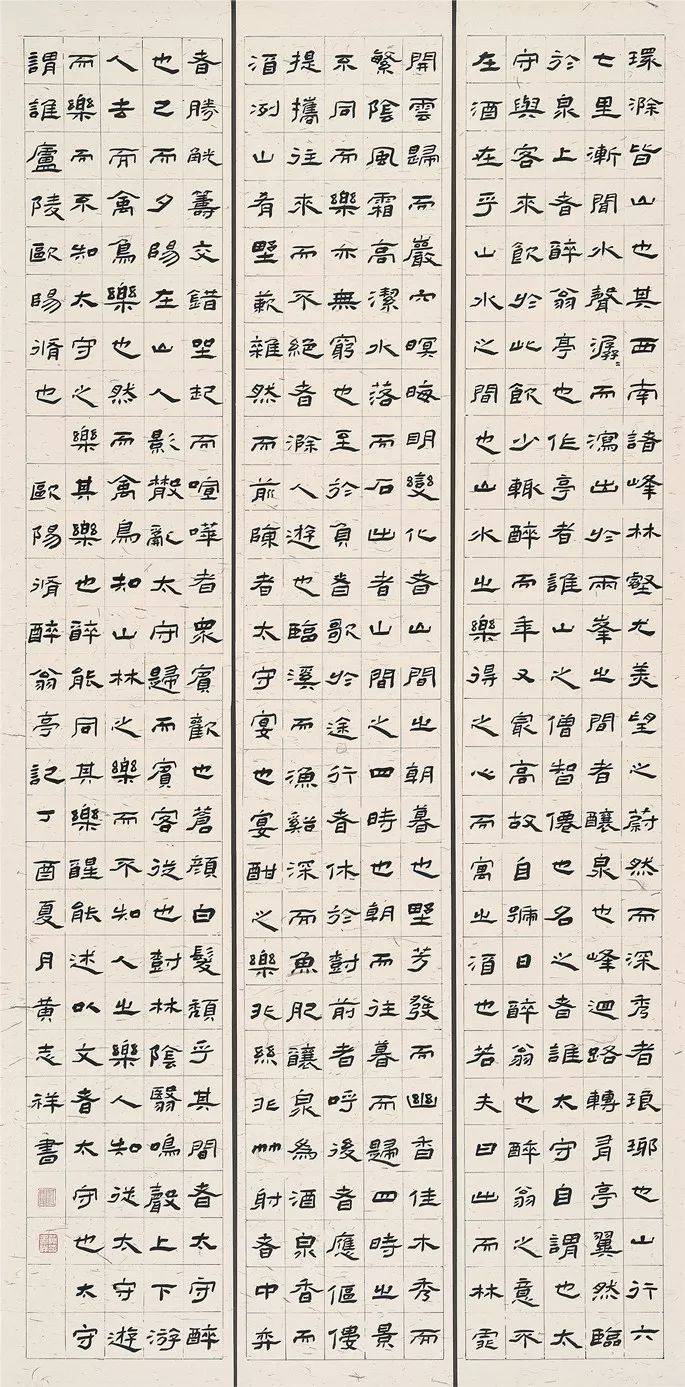 環滁皆山也其西南諸峰林壑尤美望之蔚然而深秀者琅琊也山行六
七里漸聞水聲潺潺而瀉出於兩峯之間者釀泉也峰迴路轉有亭翼然臨
於泉上者醉翁亭也作亭者誰山之僧智僊也名之者誰太守自謂也太
守與客來飲於此飲少輒醉而年又最高故自號曰醉翁也醉翁之意不
在酒在乎山水之間也山水之樂得之心而寓之酒也若夫日出而林霏
開雲歸而巖穴暝晦明變化者山間之朝暮也野芳發而幽香佳木秀而
繁陰風霜高潔水落而石出者山間之四時也朝而往暮而歸四時之景
不同而樂亦無窮也至於負者歌於途行者休於樹前者呼後者應傴僂
提攜往來而不絕者滁人遊也臨溪而漁谿深而魚肥釀泉爲酒泉香而
酒洌山肴野蔌雜然而前陳者太守宴也宴酣之樂非絲非竹射者中弈
者勝觥籌交錯坐起而喧嘩者眾賓歡也蒼顏白髮頹乎其間者太守醉
也已而夕陽在山人影散亂太守歸而賓客從也樹林陰翳鳴聲上下游
人去而禽鳥樂也然而禽鳥知山林之樂而不知人之樂人知從太守遊
而樂而不知太守之樂其樂也醉能同其樂醒能述以文者太守也太守
謂誰廬陵歐陽脩也 歐陽脩醉翁亭記丁酉夏月黃志祥書